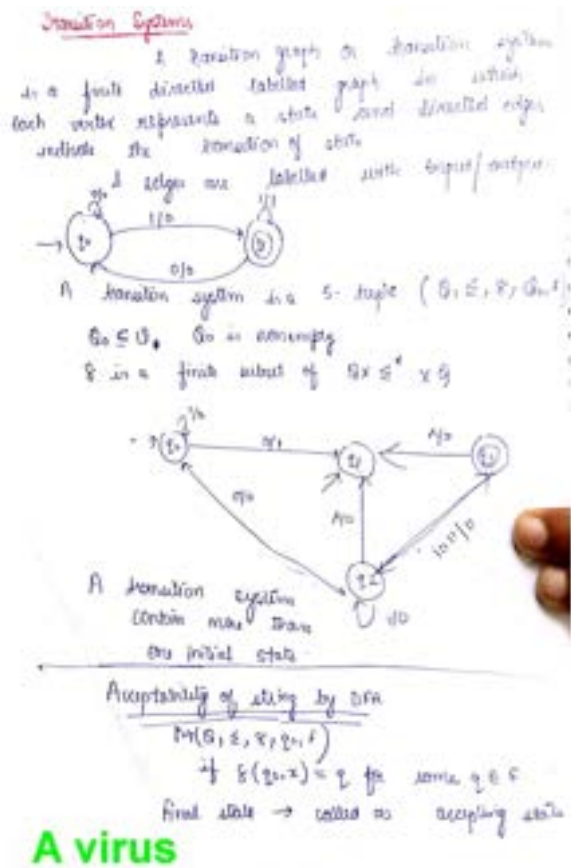 Transition Systems
A transition graph or transition system
is a finite directed labelled graph in which
each vertex represents a state and directed edges
indicate the transition of state
& edges are labelled with input/output.
0/0
1/1
1/0
q0
0/0
A transition system is a 5-tuple (Q, Σ, δ, Q0, F)
Q0 ⊆ Q, Q0 is nonempty
δ is a finite subset of Q x Σ* x Q
q0
q1
q3
0/0
q2
1/0
A transition system
contain more than
one initial state
Acceptability of string by DFA
M(Q, Σ, δ, q0, F)
if δ(q0, x) = q for some q ∈ F
final state → called as accepting state
A virus